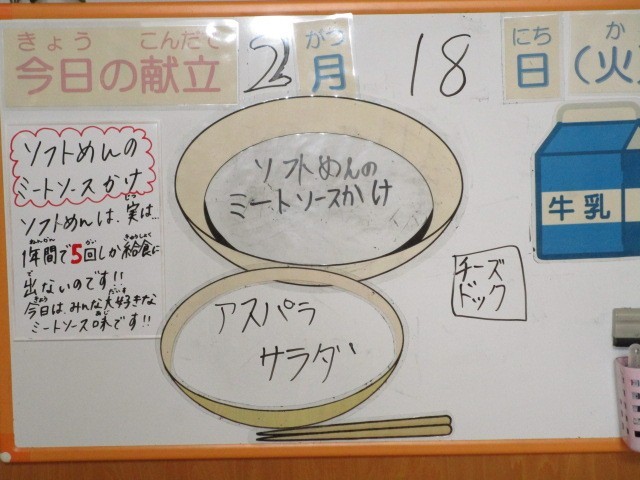 きょう こんだて
今日の献立 2 月 18 日 (火
がつ にち か
ソフトめんの
ミートソースかけ
ソフトめんは、実は…
じつ
1年間で5回しか給食に
ねんかん かい きゅうしょく
出ないのです!!
で
今日は、みんな大好きな
きょう だいす
ミートソース味です!!
あじ
ソフトめんの
ミートソースかけ
チーズ
ドック
アスパラ
サラダ
牛乳